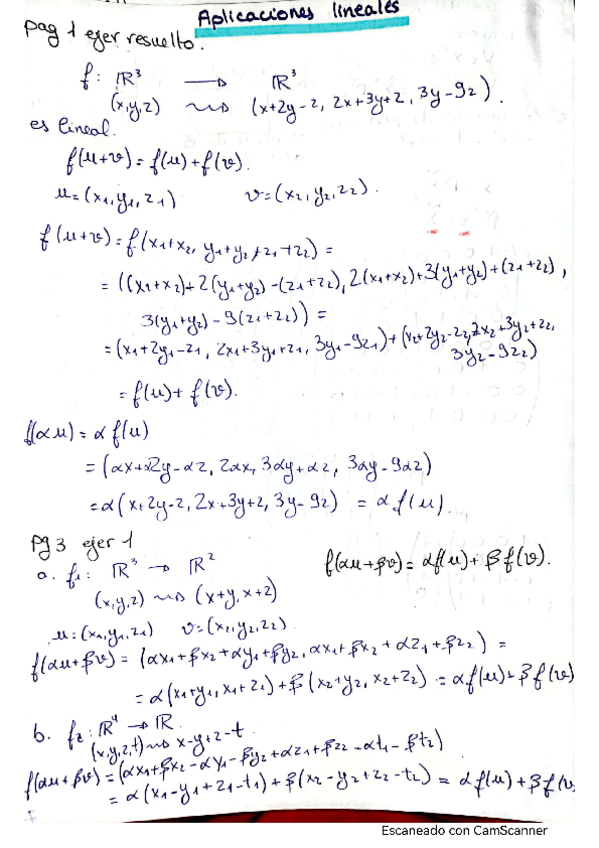 Aplicaciones lineales
pag 1 ejer resuelto.
f: ℝ³ → ℝ³
(x,y,z) ⇝ (x+2y-z, 2x+3y+z, 3y-9z).
es lineal.
f(u+v)=f(u)+f(v).
u=(x1,y1,z1) v=(x2,y2,z2).
f(u+v)=f(x1+x2, y1+y2, z1+z2)=
=((x1+x2)+2(y1+y2)-(z1+z2), 2(x1+x2)+3(y1+y2)+(z1+z2),
3(y1+y2)-9(z1+z2))=
=(x1+2y1-z1, 2x1+3y1+z1, 3y1-9z1)+(x2+2y2-z2, 2x2+3y2+z2,
3y2-9z2)
=f(u)+f(v).
f(αu)=αf(u)
=(αx+α2y-αz, 2αx, 3αy+αz, 3αy-9αz)
=α(x+2y-z, 2x+3y+z, 3y-9z) = αf(u).
Pg 3 ejer 1
a. f1: ℝ³ → ℝ² f(αu+βv)=αf(u)+βf(v).
(x,y,z) ⇝ (x+y, x+z)
u=(x1,y1,z1) v=(x2,y2,z2)
f(αu+βv)=(αx1+βx2+αy1+βy2, αx1+βx2+αz1+βz2)=
=α(x1+y1, x1+z1)+β(x2+y2, x2+z2)=αf(u)+βf(v)
b. f2: ℝ⁴ → ℝ
(x,y,z,t) ⇝ x-y+z-t.
f(αu+βv)=(αx1+βx2-αy1-βy2+αz1+βz2-αt1-βt2)
=α(x1-y1+z1-t1)+β(x2-y2+z2-t2)=αf(u)+βf(v
Escaneado con CamScanner